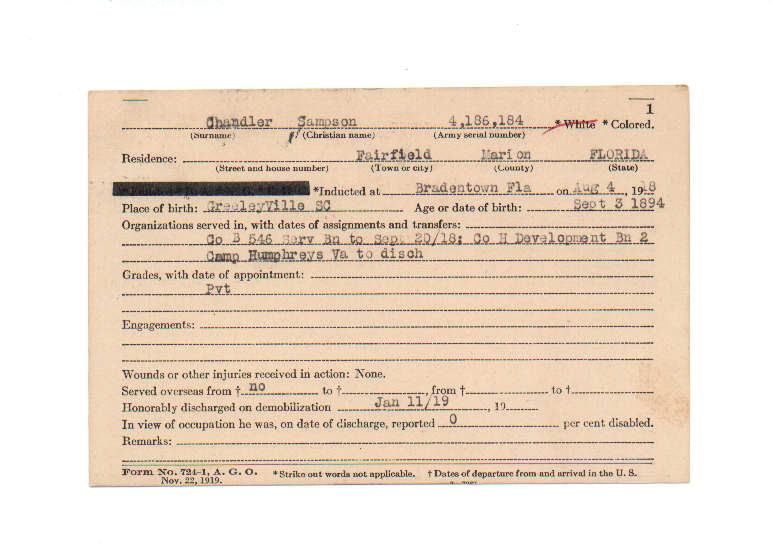 1
Chandler Sampson 4,186,184 * White * Colored.
(Surname) (Christian name) (Army serial number)
Residence: Fairfield Marion FLORIDA
(Street and house number) (Town or city) (County) (State)
*Inducted at Bradentown Fla on Aug 4, 1918
Place of birth: GreeleyVille SC Age or date of birth: Sept 3 1894
Organizations served in, with dates of assignments and transfers:
Co B 546 Serv Bn to Sept 20/18; Co H Development Bn 2
Camp Humphreys Va to disch
Grades, with date of appointment:
Pvt
Engagements:
Wounds or other injuries received in action: None.
Served overseas from † no to † , from † to †
Honorably discharged on demobilization Jan 11/19 , 19
In view of occupation he was, on date of discharge, reported 0 per cent disabled.
Remarks:
Form No. 724-1, A. G. O. * Strike out words not applicable. † Dates of departure from and arrival in the U. S.
Nov. 22, 1919.